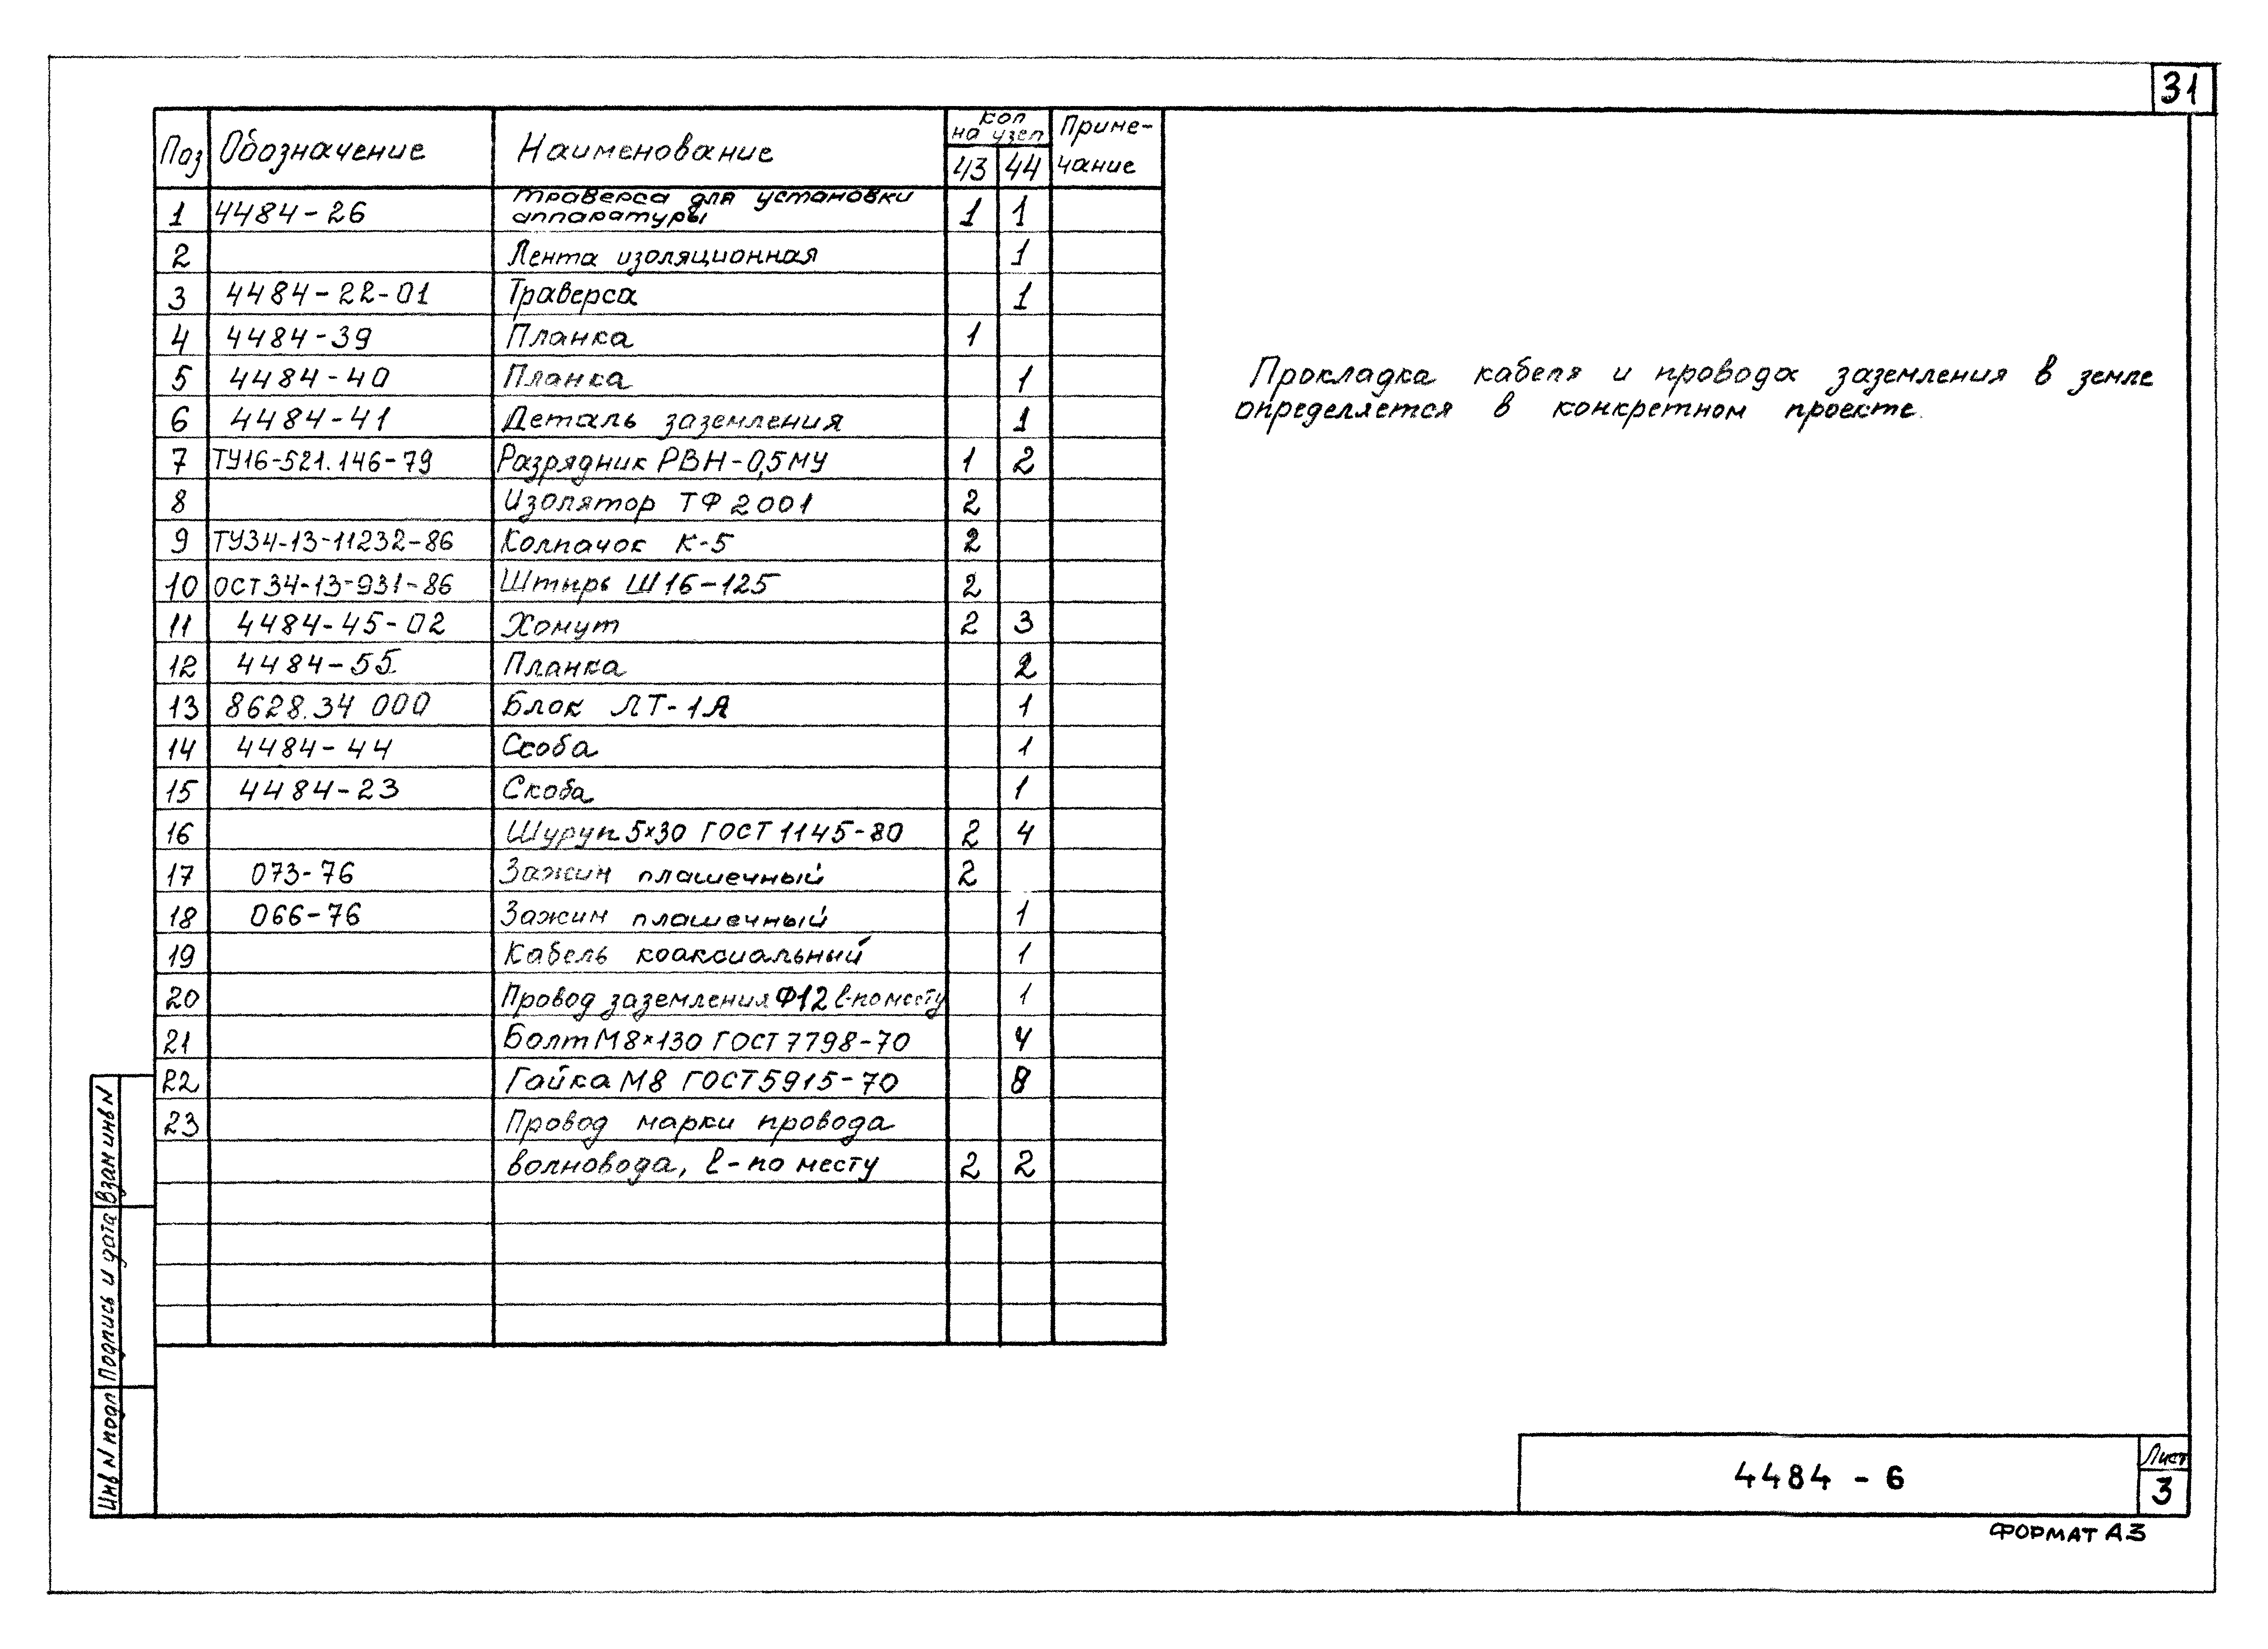 31
Поз Обозначение Наименование Кол на узел Приме-
43 44 чание
1 4484-26 Траверса для установки аппаратуры 1 1
2 Лента изоляционная 1
3 4484-22-01 Траверса 1
4 4484-39 Планка 1
5 4484-40 Планка 1
6 4484-41 Деталь заземления 1
7 ТУ16-521.146-79 Разрядник РВН-0,5МУ 1 2
8 Изолятор ТФ 2001 2
9 ТУ34-13-11232-86 Колпачок К-5 2
10 ОСТ34-13-931-86 Штырь Ш16-125 2
11 4484-45-02 Хомут 2 3
12 4484-55 Планка 2
13 8628.34 000 Блок ЛТ-1А 1
14 4484-44 Скоба 1
15 4484-23 Скоба 1
16 Шуруп 5×30 ГОСТ 1145-80 2 4
17 073-76 Зажим плашечный 2
18 066-76 Зажим плашечный 1
19 Кабель коаксиальный 1
20 Провод заземления Ф12 ℓ-по месту 1
21 Болт М8×130 ГОСТ 7798-70 4
22 Гайка М8 ГОСТ 5915-70 8
23 Провод марки провода
волновода, ℓ-по месту 2 2
Прокладка кабеля и провода заземления в земле
определяется в конкретном проекте.
Взам инв N
Подпись и дата
Инв N подл
4484 - 6
Лист
3
ФОРМАТ А3